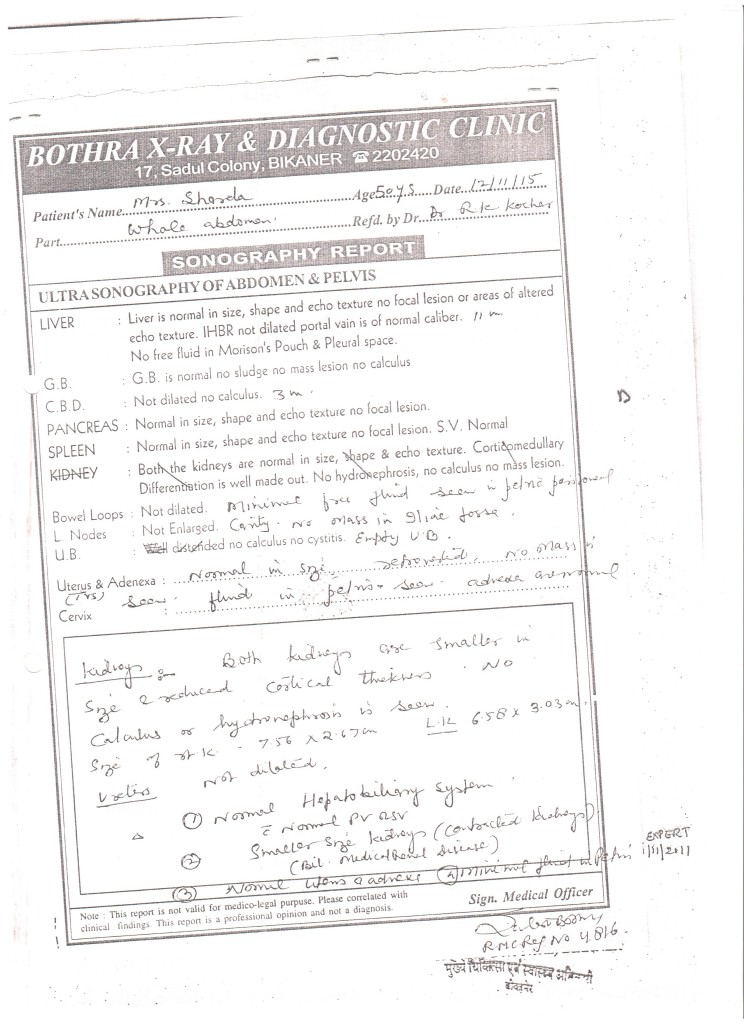 BOTHRA X-RAY & DIAGNOSTIC CLINIC
17, Sadul Colony, BIKANER ☎ 2202420
Patient's Name Mrs. Sharda Age 50 yS Date 12/11/15
Part Whole abdomen. Refd. by Dr. Dr R K Kochar
SONOGRAPHY REPORT
ULTRASONOGRAPHY OF ABDOMEN & PELVIS
LIVER : Liver is normal in size, shape and echo texture no focal lesion or areas of altered
echo texture. IHBR not dilated portal vain is of normal caliber. 11 m
No free fluid in Morison's Pouch & Pleural space.
G.B. : G.B. is normal no sludge no mass lesion no calculus
C.B.D. : Not dilated no calculus. 3 m.
PANCREAS : Normal in size, shape and echo texture no focal lesion.
SPLEEN : Normal in size, shape and echo texture no focal lesion. S.V. Normal
KIDNEY : Both the kidneys are normal in size, shape & echo texture. Corticomedullary
Differentiation is well made out. No hydronephrosis, no calculus no mass lesion.
Bowel Loops : Not dilated. Minimul free fluid seen in pelvic
L. Nodes : Not Enlarged. Cavity. No mass in Iliac fossa.
U.B. : Well distended no calculus no cystitis. Empty U.B.
Uterus & Adenexa : Normal in size, retroverted, No mass is
(TVS) seen. fluid in pelvis seen. adnexa are normal
Cervix :
Kidneys :- Both kidneys are smaller in
Size & reduced Cortical thickness. No
Calculus or hydronephrosis is seen.
Size of rt K - 7.56 x 2.67cm L.K 6.58 x 3.03 cm
Ureters Not dilated.
① Normal Hepatobiliary System
c Normal PV & SV
② Smaller Size Kidneys (Contracted Kidneys)
(Bil. Medical Renal Disease)
③ Normal Uterus & adnexa ④ Minimul fluid in Pelvis
EXPERT
1/11/2011
Note : This report is not valid for medico-legal purpuse. Please correlated with
clinical findings. This report is a professional opinion and not a diagnosis.
Sign. Medical Officer
RMC Reg No 4816.
मुख्य चिकित्सा एवं स्वास्थ्य अधिकारी
बीकानेर